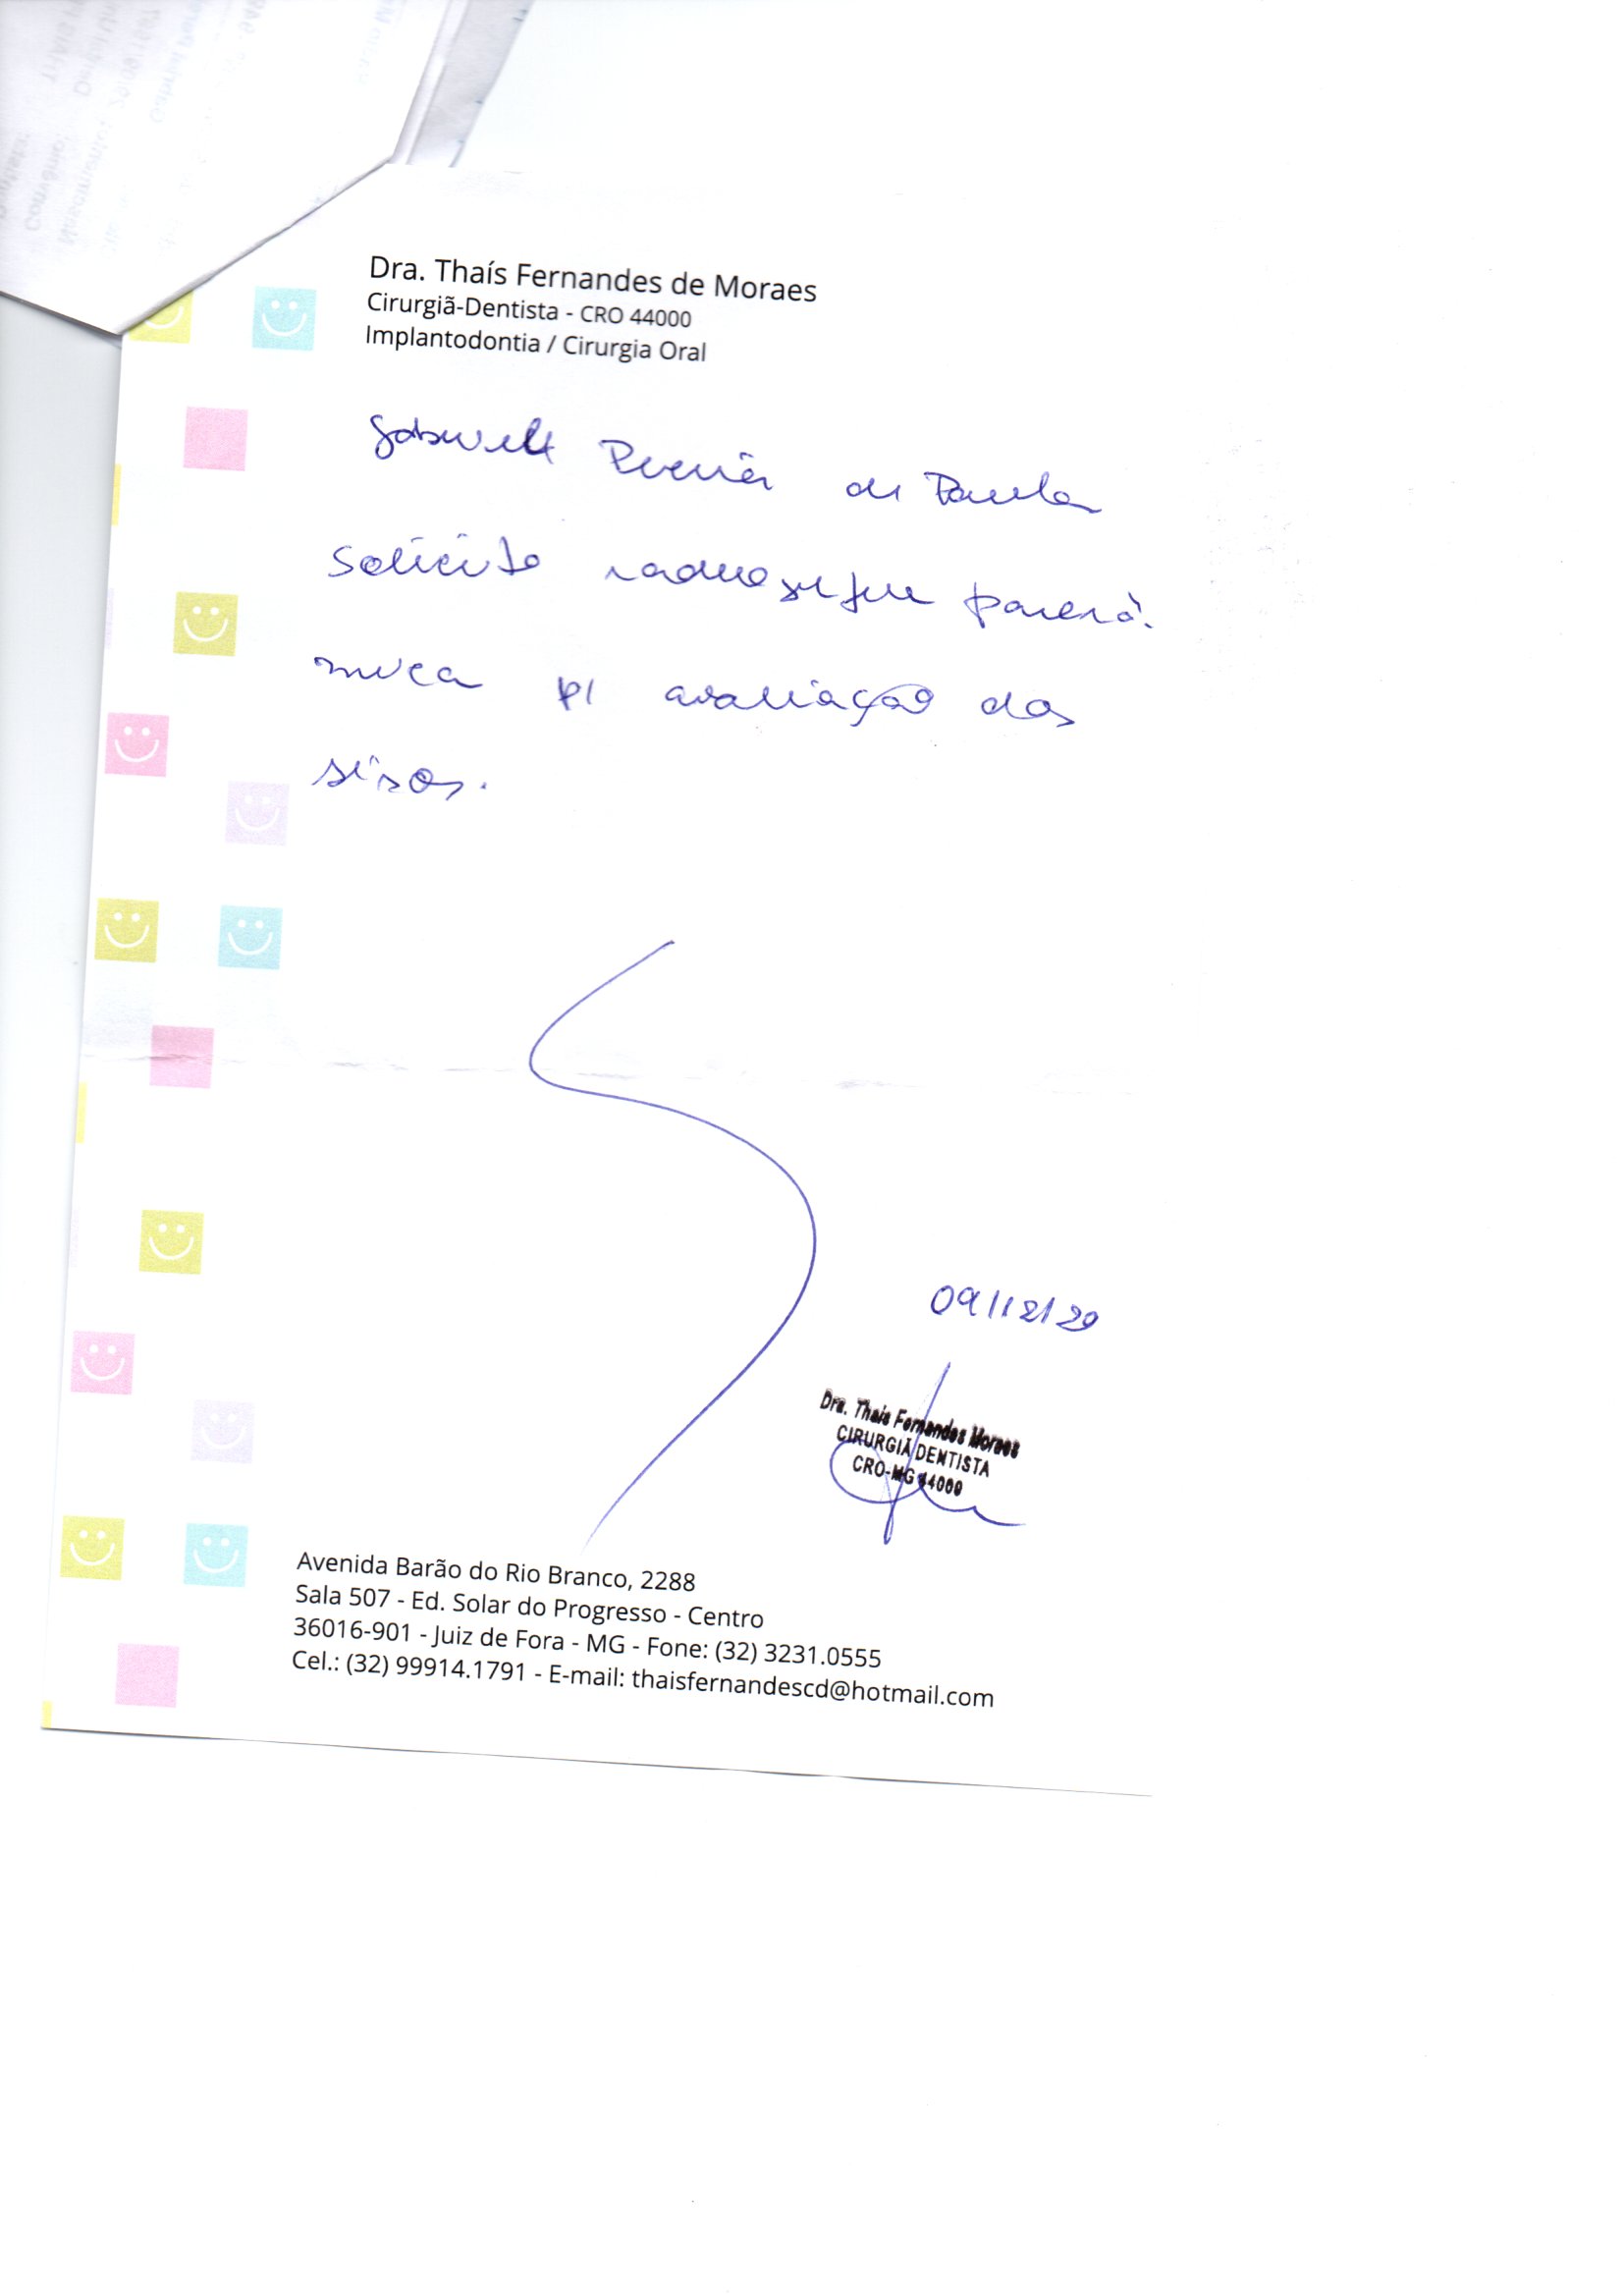 Dra. Thaís Fernandes de Moraes
Cirurgiã-Dentista - CRO 44000
Implantodontia / Cirurgia Oral
Pereira de Paula
Solicito radiografia panorâ-
mica p/ avaliação dos
sisos.
09/12/20
Dra. Thais Fernandes Moraes
CIRURGIÃ DENTISTA
CRO-MG 44000
Avenida Barão do Rio Branco, 2288
Sala 507 - Ed. Solar do Progresso - Centro
36016-901 - Juiz de Fora - MG - Fone: (32) 3231.0555
Cel.: (32) 99914.1791 - E-mail: thaisfernandescd@hotmail.com